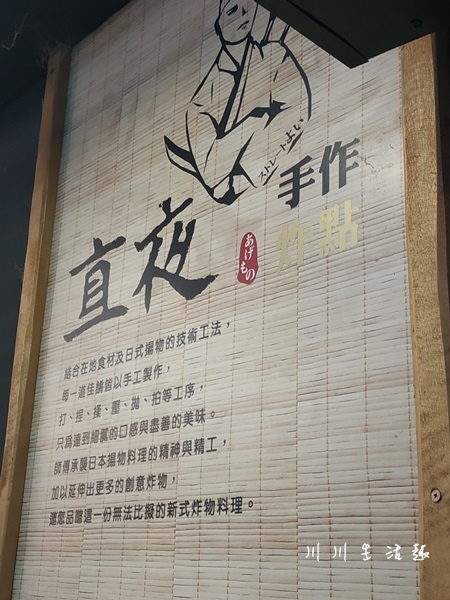 ストレートよい
手作
炸點
直夜
あげもの
結合在地食材及日式揚物的技術工法，
每一道佳餚皆以手工製作，
打、捏、揉、壓、拋、拍等工序，
只為達到細膩的口感與盡善的美味。
師傅承襲日本揚物料理的精神與精工，
加以延伸出更多的創意炸物，
邀您品嚐這一份無法比擬的新式炸物料理。
川川生活趣